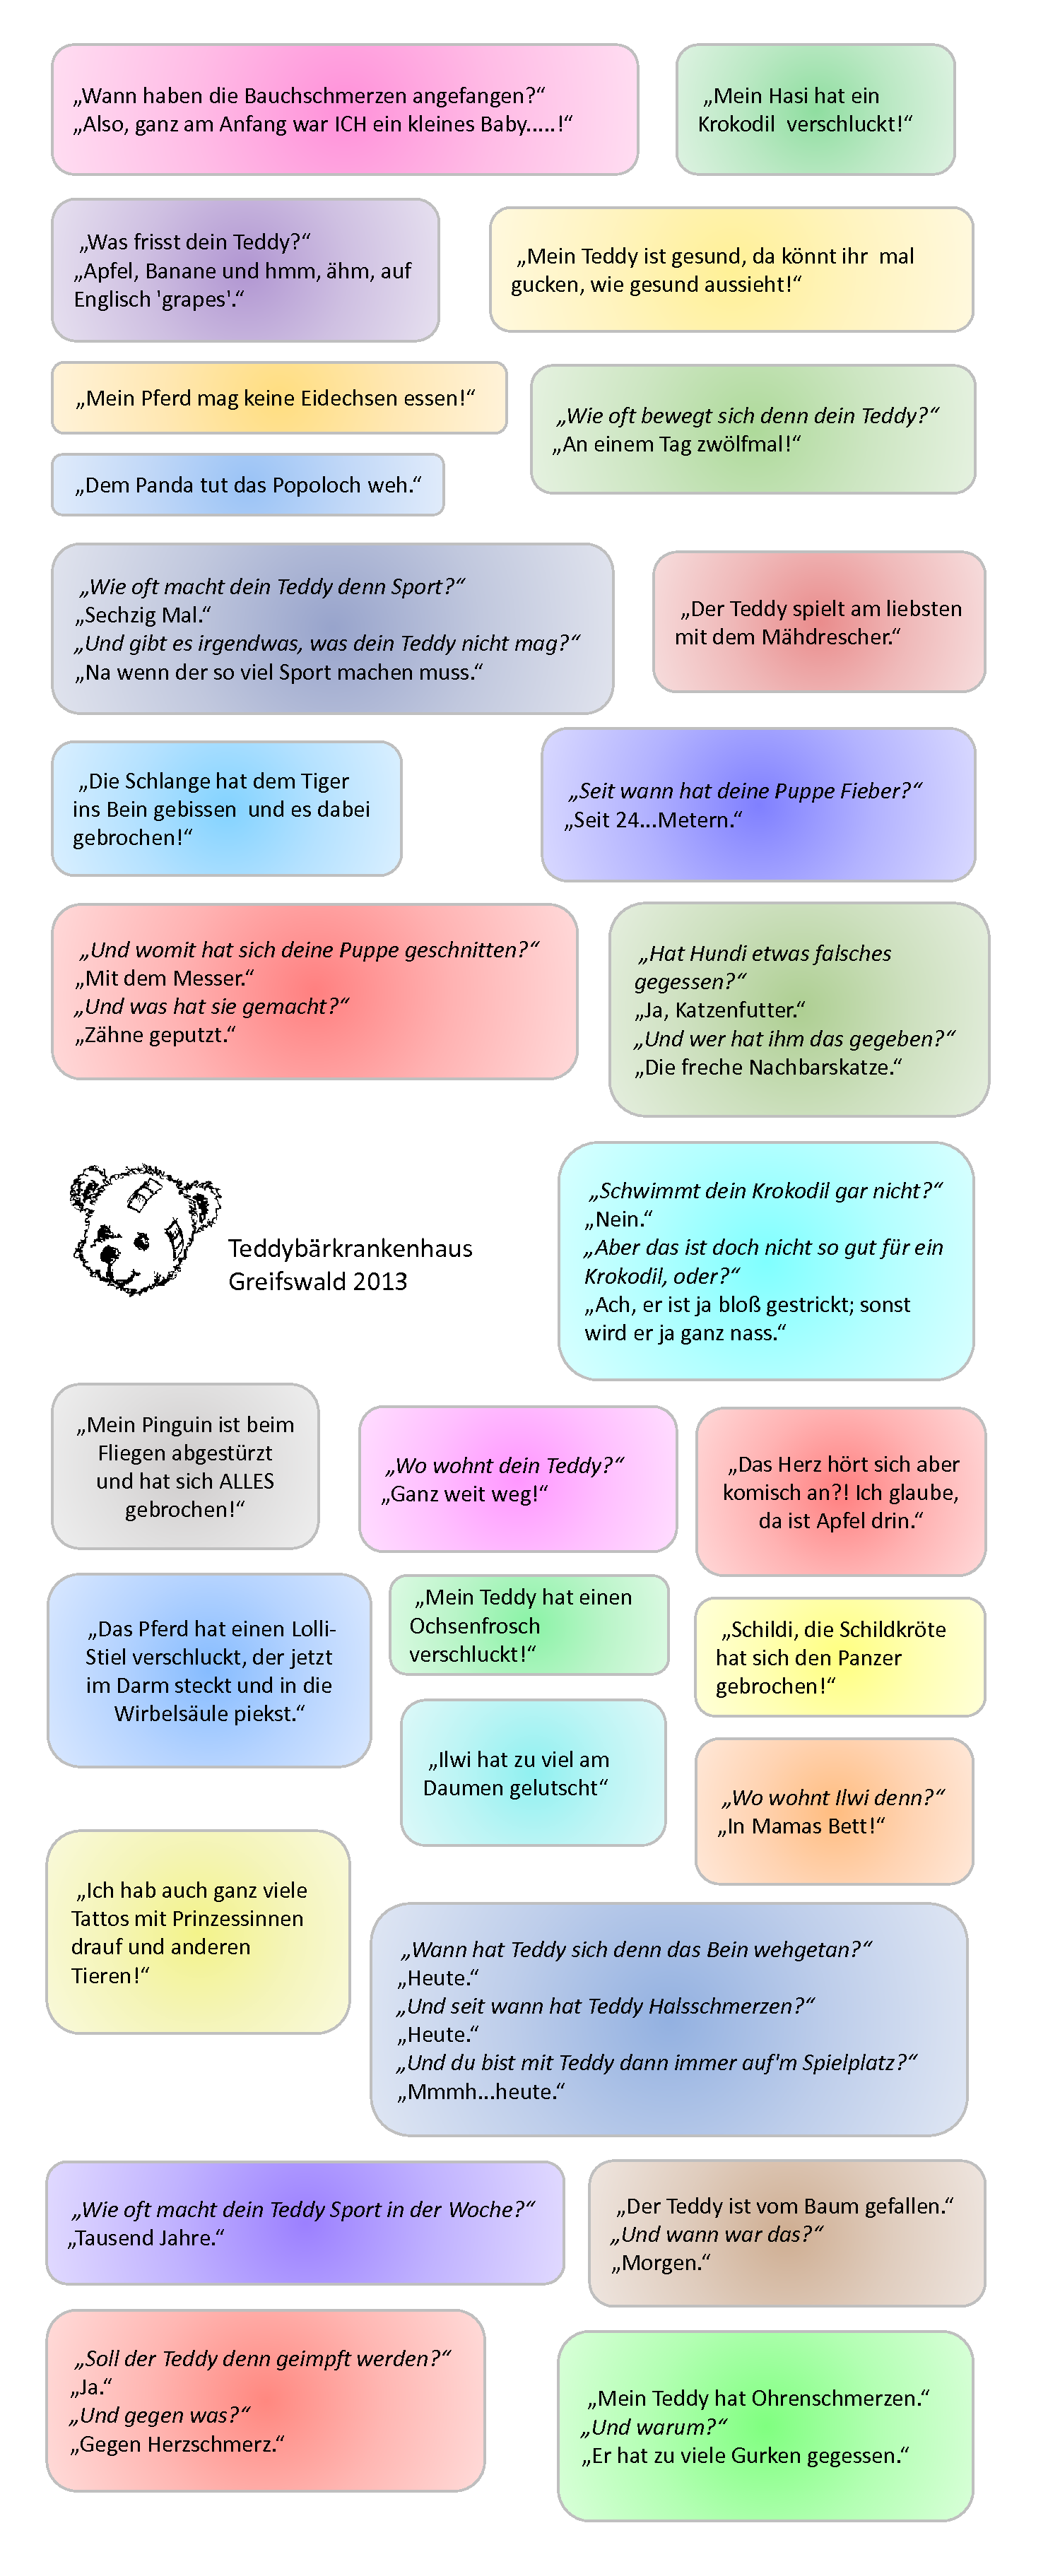 „Wann haben die Bauchschmerzen angefangen?“
„Also, ganz am Anfang war ICH ein kleines Baby.....!“
„Mein Hasi hat ein
Krokodil verschluckt!“
„Was frisst dein Teddy?“
„Apfel, Banane und hmm, ähm, auf
Englisch 'grapes'.“
„Mein Teddy ist gesund, da könnt ihr mal
gucken, wie gesund aussieht!“
„Mein Pferd mag keine Eidechsen essen!“
„Wie oft bewegt sich denn dein Teddy?“
„An einem Tag zwölfmal!“
„Dem Panda tut das Popoloch weh.“
„Wie oft macht dein Teddy denn Sport?“
„Sechzig Mal.“
„Und gibt es irgendwas, was dein Teddy nicht mag?“
„Na wenn der so viel Sport machen muss.“
„Der Teddy spielt am liebsten
mit dem Mähdrescher.“
„Die Schlange hat dem Tiger
ins Bein gebissen und es dabei
gebrochen!“
„Seit wann hat deine Puppe Fieber?“
„Seit 24...Metern.“
„Und womit hat sich deine Puppe geschnitten?“
„Mit dem Messer.“
„Und was hat sie gemacht?“
„Zähne geputzt.“
„Hat Hundi etwas falsches
gegessen?“
„Ja, Katzenfutter.“
„Und wer hat ihm das gegeben?“
„Die freche Nachbarskatze.“
Teddybärkrankenhaus
Greifswald 2013
„Schwimmt dein Krokodil gar nicht?“
„Nein.“
„Aber das ist doch nicht so gut für ein
Krokodil, oder?“
„Ach, er ist ja bloß gestrickt; sonst
wird er ja ganz nass.“
„Mein Pinguin ist beim
Fliegen abgestürzt
und hat sich ALLES
gebrochen!“
„Wo wohnt dein Teddy?“
„Ganz weit weg!“
„Das Herz hört sich aber
komisch an?! Ich glaube,
da ist Apfel drin.“
„Das Pferd hat einen Lolli-
Stiel verschluckt, der jetzt
im Darm steckt und in die
Wirbelsäule piekst.“
„Mein Teddy hat einen
Ochsenfrosch
verschluckt!“
„Schildi, die Schildkröte
hat sich den Panzer
gebrochen!“
„Ilwi hat zu viel am
Daumen gelutscht“
„Wo wohnt Ilwi denn?“
„In Mamas Bett!“
„Ich hab auch ganz viele
Tattos mit Prinzessinnen
drauf und anderen
Tieren!“
„Wann hat Teddy sich denn das Bein wehgetan?“
„Heute.“
„Und seit wann hat Teddy Halsschmerzen?“
„Heute.“
„Und du bist mit Teddy dann immer auf'm Spielplatz?“
„Mmmh...heute.“
„Wie oft macht dein Teddy Sport in der Woche?“
„Tausend Jahre.“
„Der Teddy ist vom Baum gefallen.“
„Und wann war das?“
„Morgen.“
„Soll der Teddy denn geimpft werden?“
„Ja.“
„Und gegen was?“
„Gegen Herzschmerz.“
„Mein Teddy hat Ohrenschmerzen.“
„Und warum?“
„Er hat zu viele Gurken gegessen.“